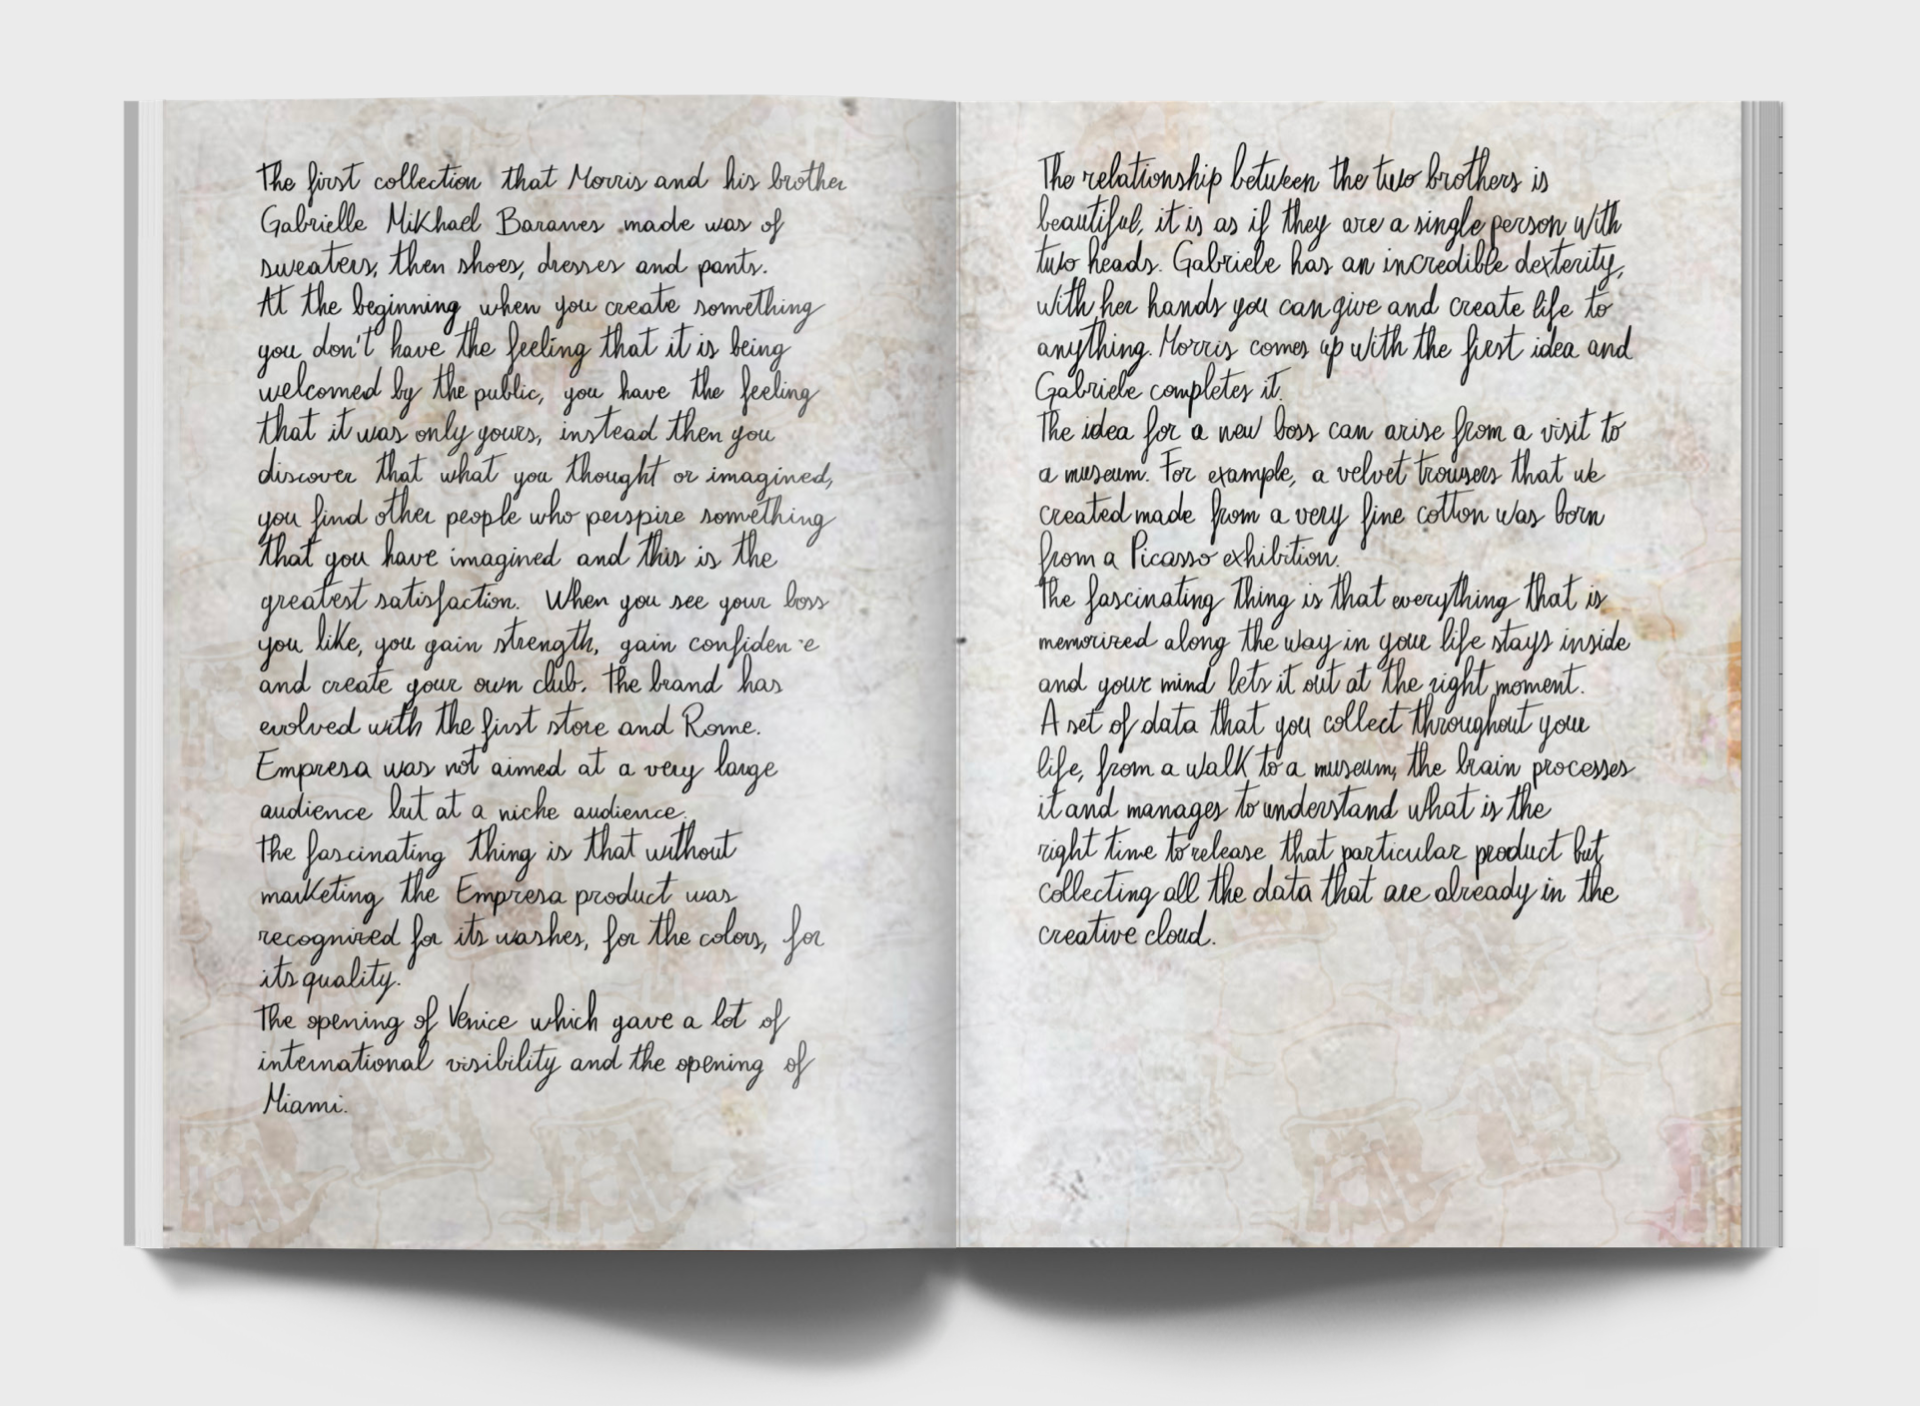 The first collection that Morris and his brother
Gabrielle Mikhael Baranes made was of
sweaters, then shoes, dresses and pants.
At the beginning when you create something
you don't have the feeling that it is being
welcomed by the public, you have the feeling
that it was only yours, instead then you
discover that what you thought or imagined,
you find other people who perspire something
that you have imagined and this is the
greatest satisfaction. When you see your boss
you like, you gain strength, gain confiden e
and create your own club. The brand has
evolved with the first store and Rome.
Empresa was not aimed at a very large
audience but at a niche audience.
The fascinating thing is that without
marketing the Empresa product was
recognized for its washes, for the colors, for
its quality.
The opening of Venice which gave a lot of
international visibility and the opening of
Miami.
The relationship between the two brothers is
beautiful, it is as if they are a single person with
two heads. Gabriele has an incredible dexterity,
with her hands you can give and create life to
anything. Morris comes up with the first idea and
Gabriele completes it.
The idea for a new boss can arise from a visit to
a museum. For example, a velvet trousers that we
created made from a very fine cotton was born
from a Picasso exhibition.
The fascinating thing is that everything that is
memorized along the way in your life stays inside
and your mind lets it out at the right moment.
A set of data that you collect throughout your
life, from a walk to a museum, the brain processes
it and manages to understand what is the
right time to release that particular product but
collecting all the data that are already in the
creative cloud.